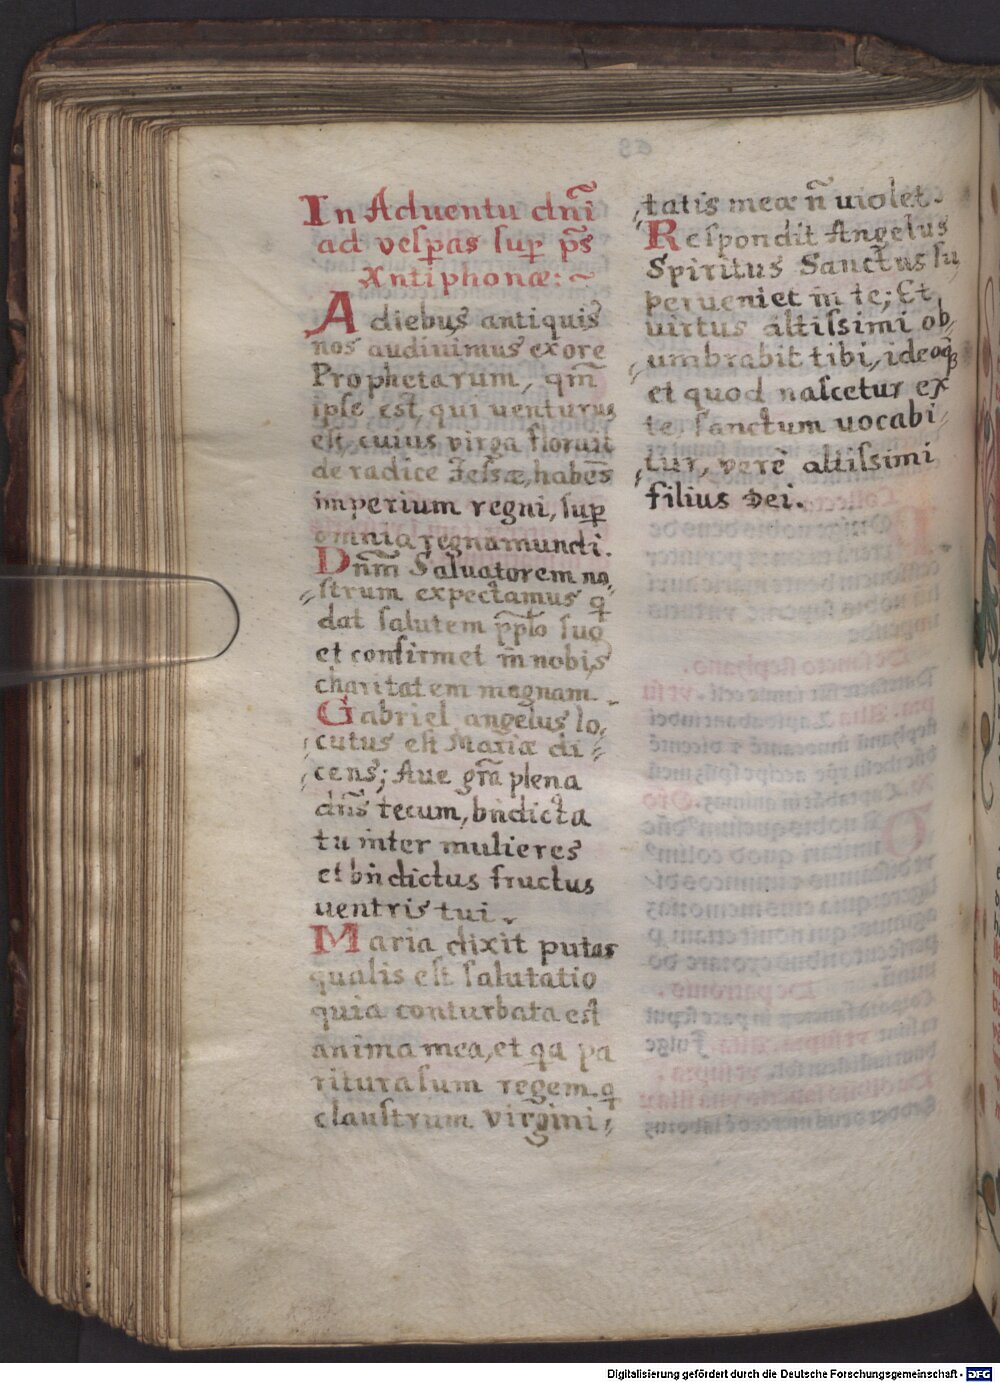 In Aduentu dñi
ad vesp̲as sup̲ p̃s
Antiphonæ: ~
A diebus antiquis
nos audiuimus ex ore
Prophetarum, qm̃
ipse est, qui uenturus
est, cuius virga floruit
de radice Jessæ, habẽs
imperium regni, sup̲
omnia regna mundi.
Dñm Saluatorem no,
strum expectamus q̃
dat salutem pp̃lo suo
et confirmet in nobis
charitatem magnam.
Gabriel angelus lo,
cutus est Mariæ di
cens; Aue gr̃a plena
dñs tecum, bñdicta
tu inter mulieres
et bñdictus fructus
uentris tui.
Maria dixit putas
qualis est salutatio
quia conturbata est
anima mea, et q̃a pa
ritura sum regem q̃
claustrum virgini,
tatis meæ ñ uiolet.
Respondit Angelus
Spiritus Sanctus su
perueniet in te; Et
uirtus altissimi ob,
umbrabit tibi, ideoq̃
et quod nascetur ex
te sanctum uocabi
tur, verè altissimi
filius Dei.
Digitalisierung gefördert durch die Deutsche Forschungsgemeinschaft - DFG